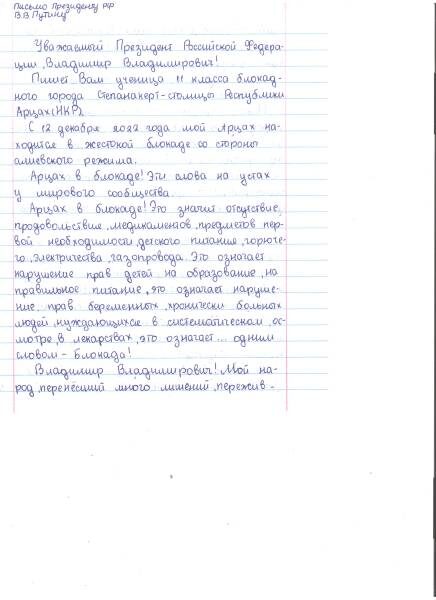 Письмо Президенту РФ
В.В Путину
Уважаемый Президент Российской Федера-
ции, Владимир Владимирович!
Пишет Вам ученица 11 класса блокад-
ного города Степанакерт-столицы Республики
Арцах(НКР).
С 12 декабря 2022 года мой Арцах на-
ходится в жестокой блокаде со стороны
алиевского режима.
Арцах в блокаде! Эти слова на устах
у мирового сообщества.
Арцах в блокаде! Это значит отсутствие
продовольствия, медикаментов, предметов пер-
вой необходимости, детского питания, горюче-
го, электричества, газопровода. Это означает
нарушение прав детей на образование, на
правильное питание, это означает наруше-
ние прав беременных, хронически больных
людей, нуждающихся в систематическом ос-
мотре, в лекарствах, это означает... одним
словом - Блокада!
Владимир Владимирович! Мой на-
род, перенёсший много лишений, пережив-